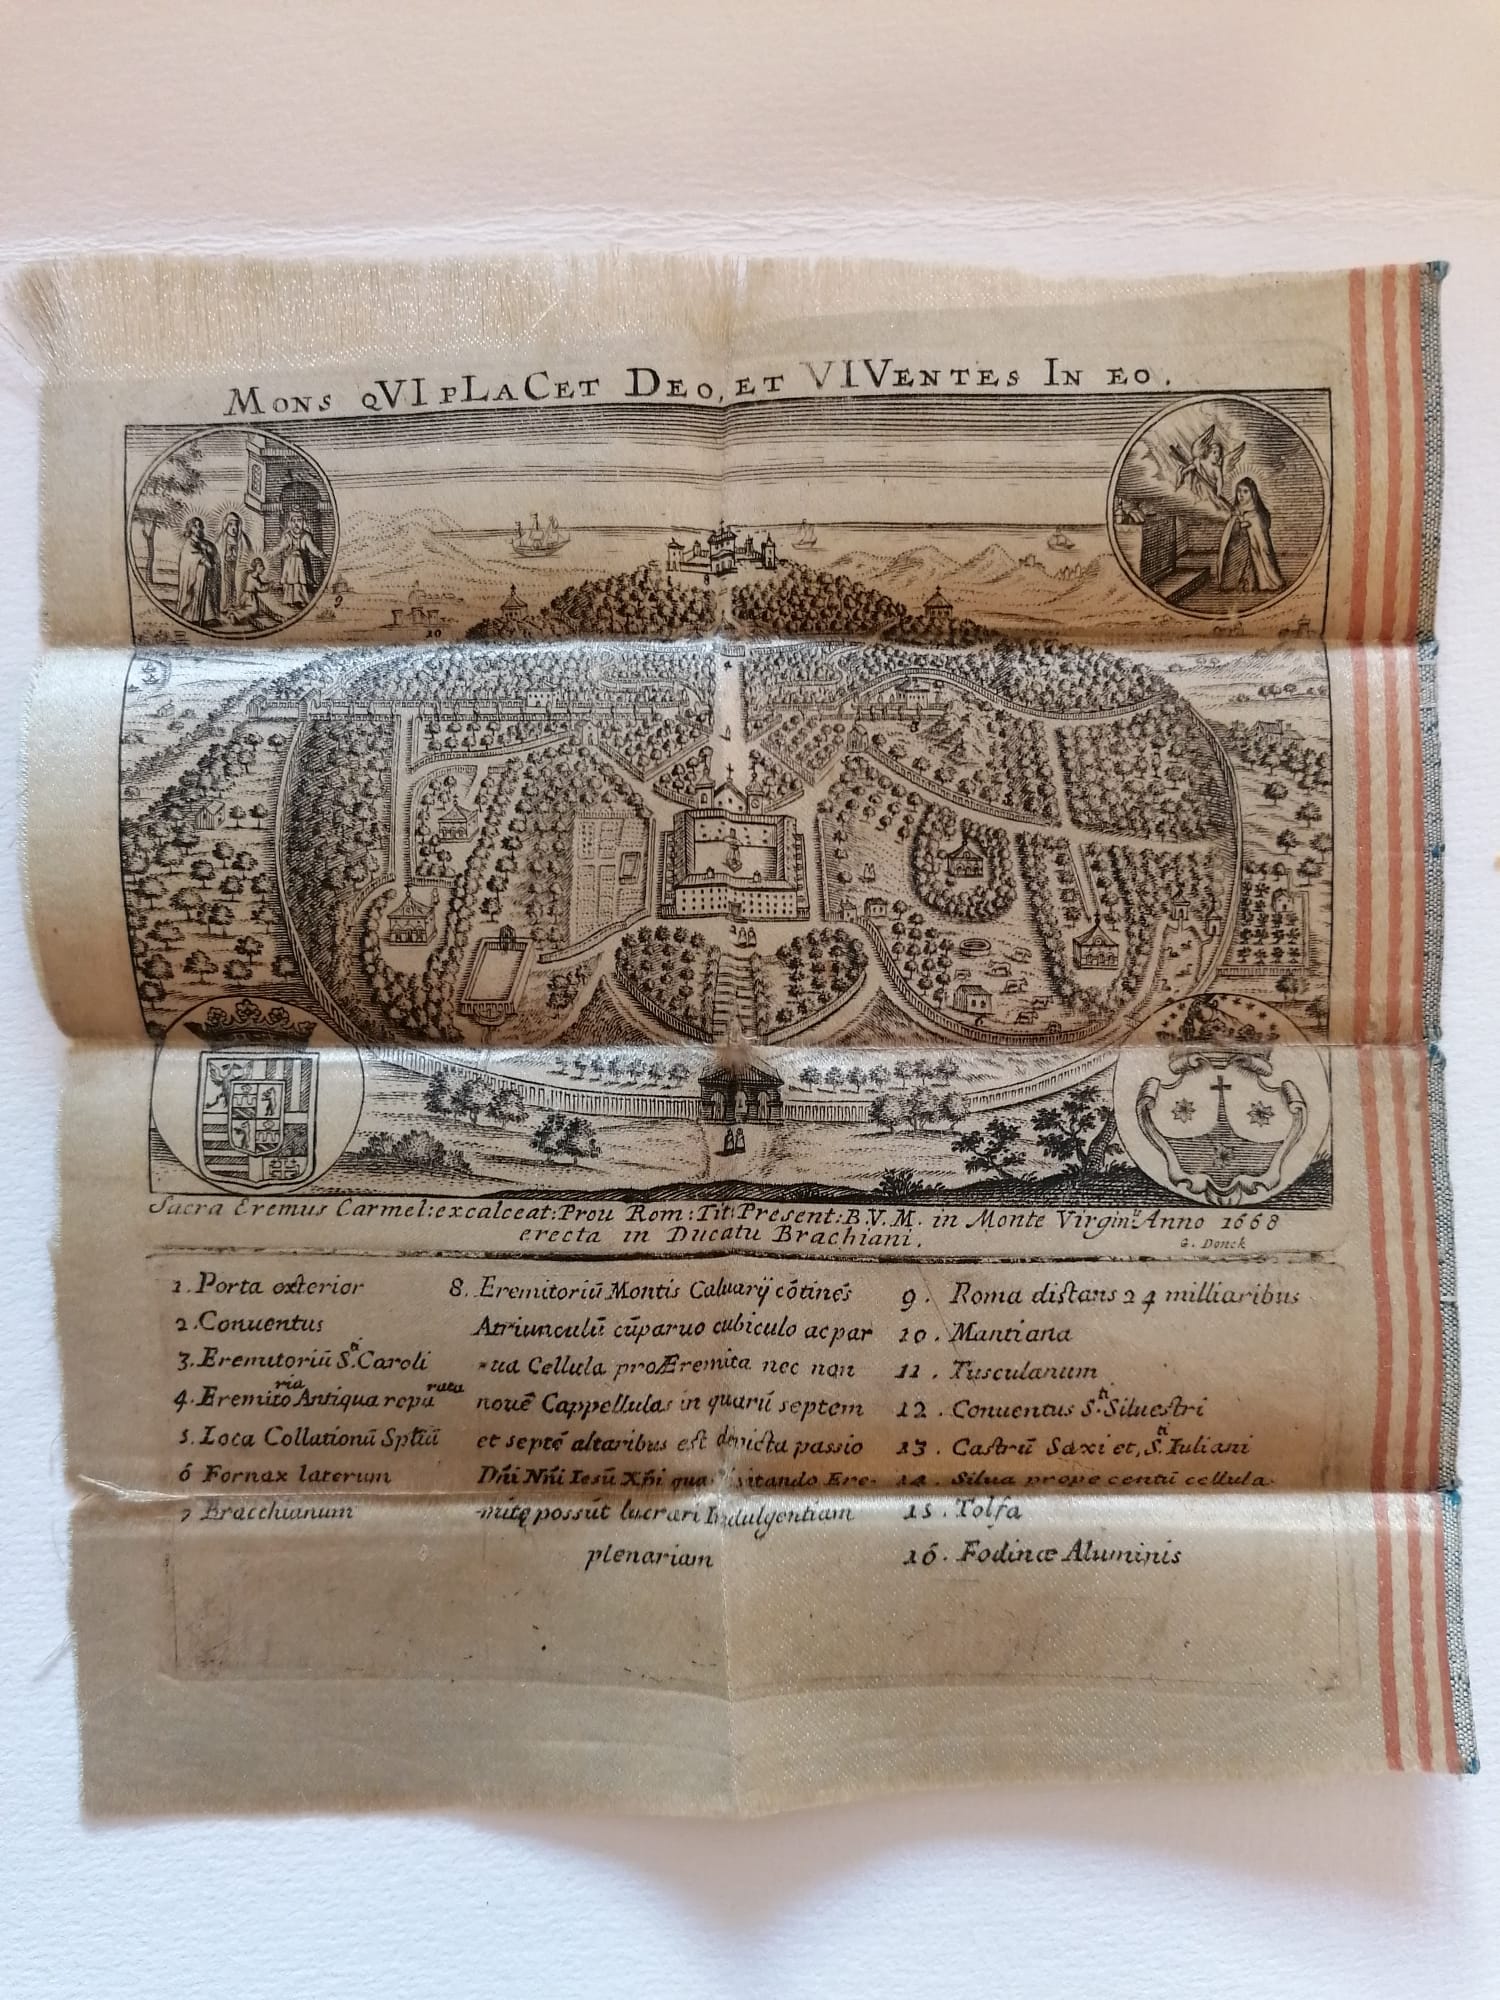 MONS QVI PLACET DEO, ET VIVENTES IN EO.
9
10
8
Sacra Eremus Carmel: excalceat: Prou Rom: Tit: Present: B.V.M. in Monte Virginũ Anno 1668
erecta in Ducatu Brachiani.
G. Donck
1. Porta exterior
2. Conuentus
3. Eremitoriũ S.ti Caroli
4. Eremitoria Antiqua reparata
5. Loca Collationũ Sptũũ
6 Fornax laterum
7 Bracchianum
8. Eremitoriũ Montis Caluarij cõtinẽs
Atriunculũ cũ paruo cubiculo ac par
ua Cellula pro Æremita nec non
nouẽ Cappellulas in quarũ septem
et septẽ altaribus est depicta passio
Dñi Nñi Iesũ Xp̃i quas visitando Ere-
mitę possũt lucrari Indulgentiam
plenariam
9. Roma distans 24 milliaribus
10. Mantiana
11. Tusculanum
12. Conuentus S.ti Siluestri
13. Castrũ Saxi et, S.ti Iuliani
14. Silua prope centũ cellula.
15. Tolfa
16. Fodinæ Aluminis